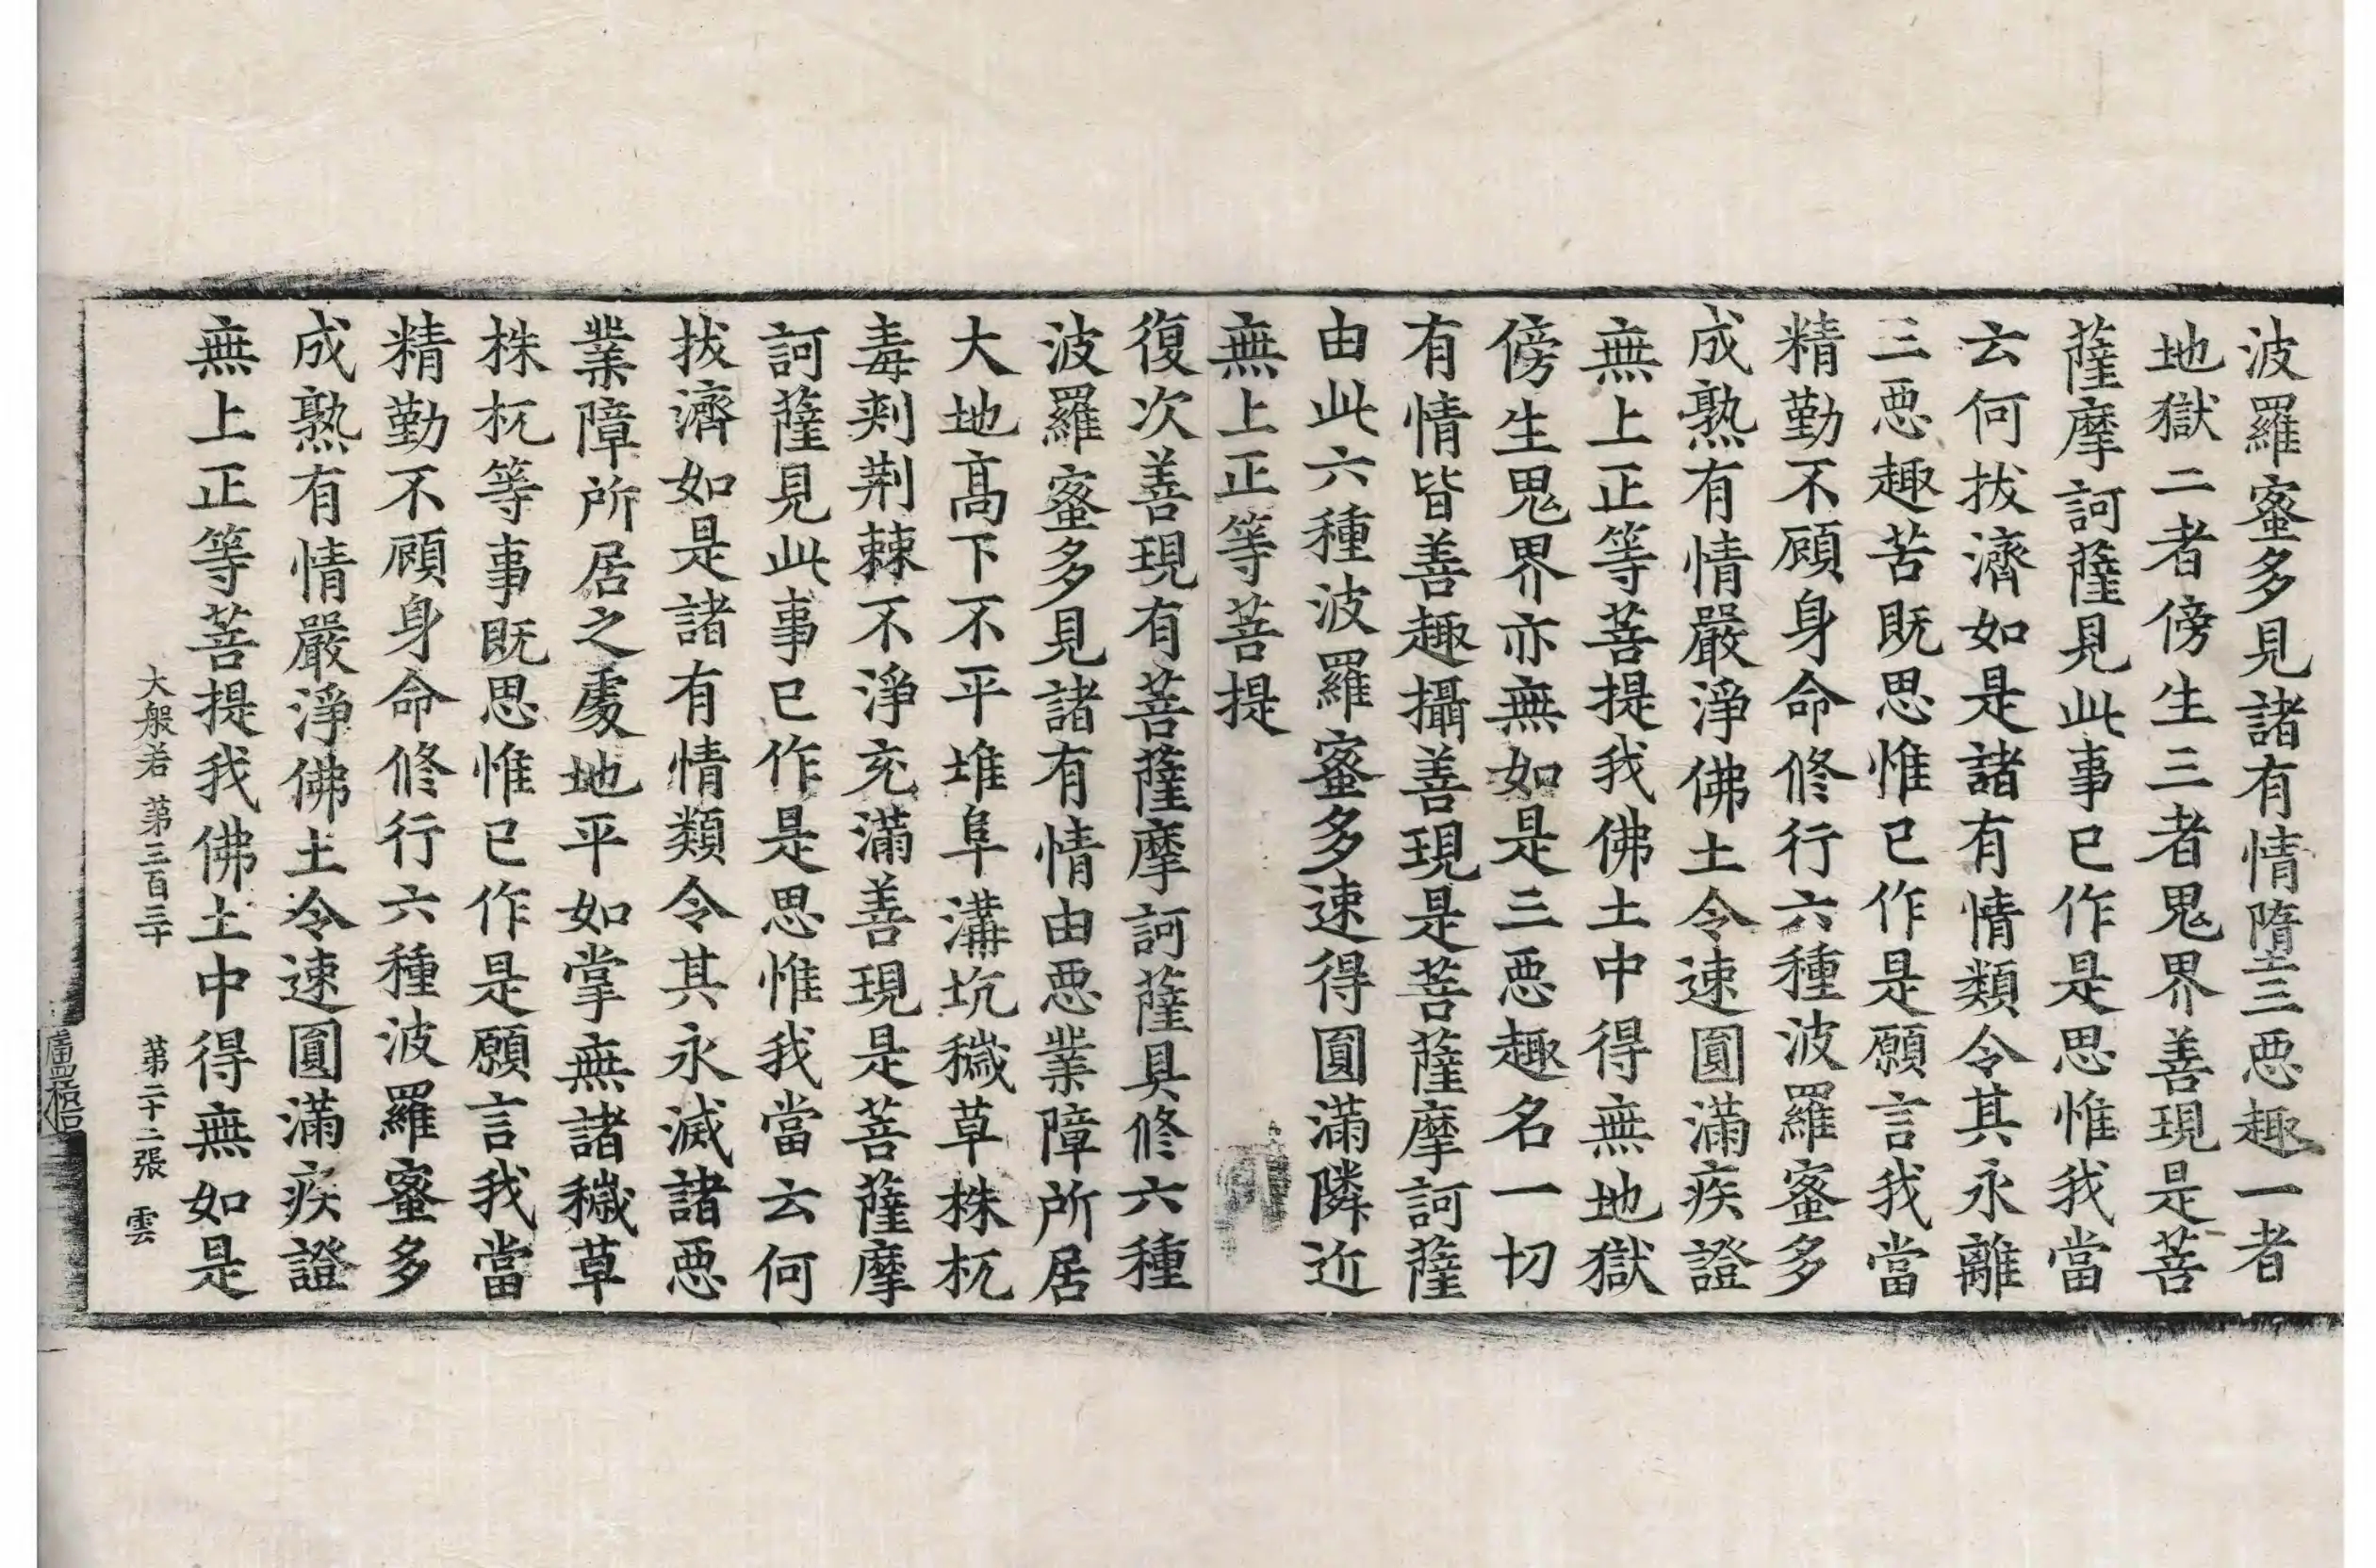 波羅蜜多見諸有情墮三惡趣一者
地獄二者傍生三者鬼界善現是菩
薩摩訶薩見此事已作是思惟我當
云何拔濟如是諸有情類令其永離
三惡趣苦既思惟已作是願言我當
精勤不顧身命修行六種波羅蜜多
成熟有情嚴淨佛土令速圓滿疾證
無上正等菩提我佛土中得無地獄
傍生鬼界亦無如是三惡趣名一切
有情皆善趣攝善現是菩薩摩訶薩
由此六種波羅蜜多速得圓滿隣近
無上正等菩提
復次善現有菩薩摩訶薩具修六種
波羅蜜多見諸有情由惡業障所居
大地髙下不平堆阜溝坑穢草株杌
毒刾荆棘不淨充滿善現是菩薩摩
訶薩見此事已作是思惟我當云何
拔濟如是諸有情類令其永滅諸惡
業障所居之處地平如掌無諸穢草
株杌等事既思惟已作是願言我當
精勤不顧身命修行六種波羅蜜多
成熟有情嚴淨佛土令速圓滿疾證
無上正等菩提我佛土中得無如是
大般若 第三百三十 第二十二張 雲